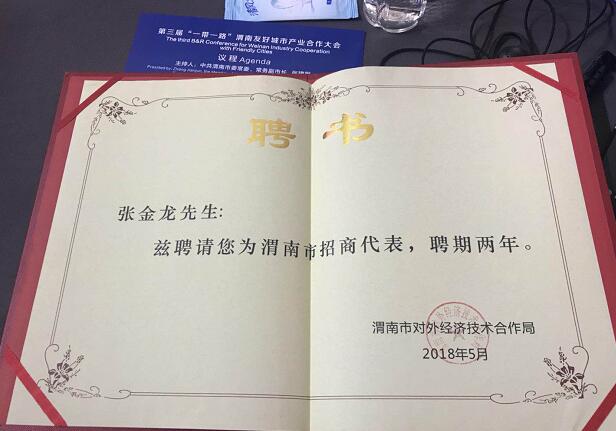 第三届“一带一路”渭南友好城市产业合作大会
The third B&R Conference for Weinan Industry Cooperation
with Friendly Cities
议程 Agenda
主持人：中共渭南市委常委、常务副市长
聘书
张金龙先生：
兹聘请您为渭南市招商代表，聘期两年。
渭南市对外经济技术合作局
2018年5月